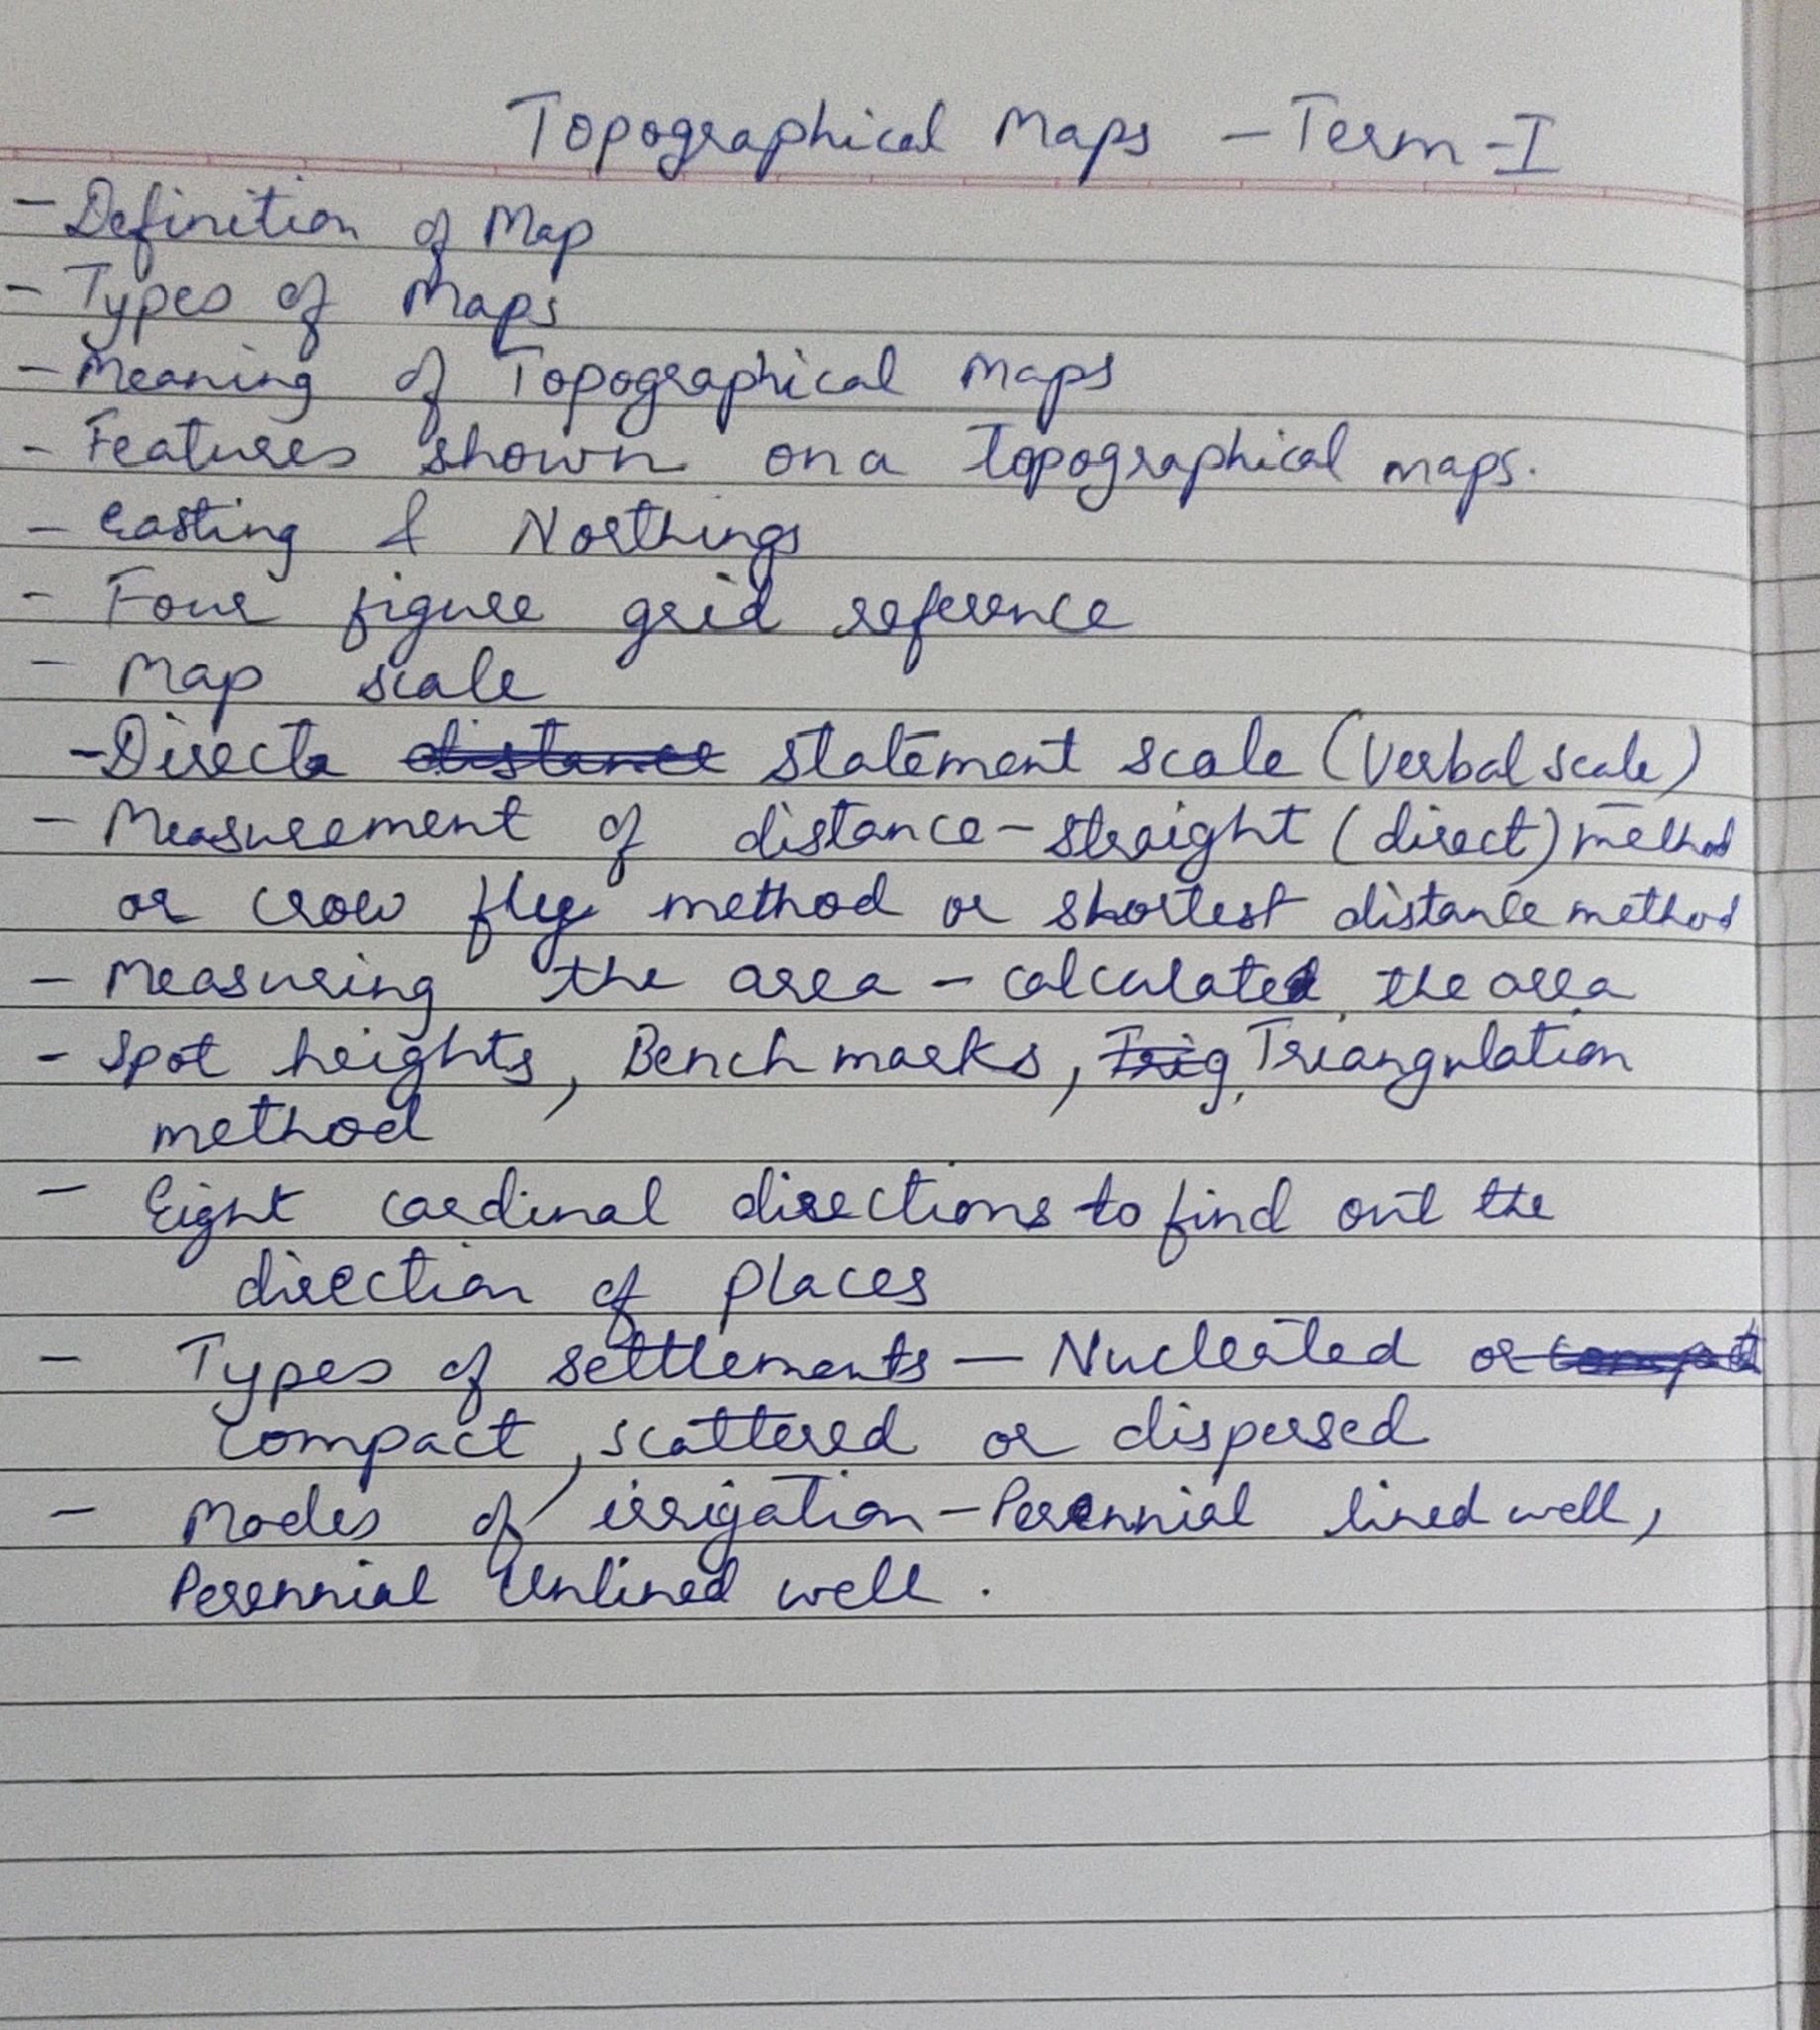 Topographical Maps - Term-I
- Definition of Map
- Types of Maps
- Meaning of Topographical Maps
- Features shown on a topographical maps.
- Easting & Northings
- Four figure grid reference
- Map scale
- Direct statement scale (Verbal scale)
- Measurement of distance - straight (direct) method
or crow fly method or shortest distance method
- Measuring the area - calculated the area
- Spot heights, Bench marks, Trig, Triangulation
method
- Eight cardinal directions to find out the
direction of places
- Types of settlements - Nucleated or compact
compact, scattered or dispersed
- Modes of irrigation - Perennial lined well,
Perennial Unlined well.